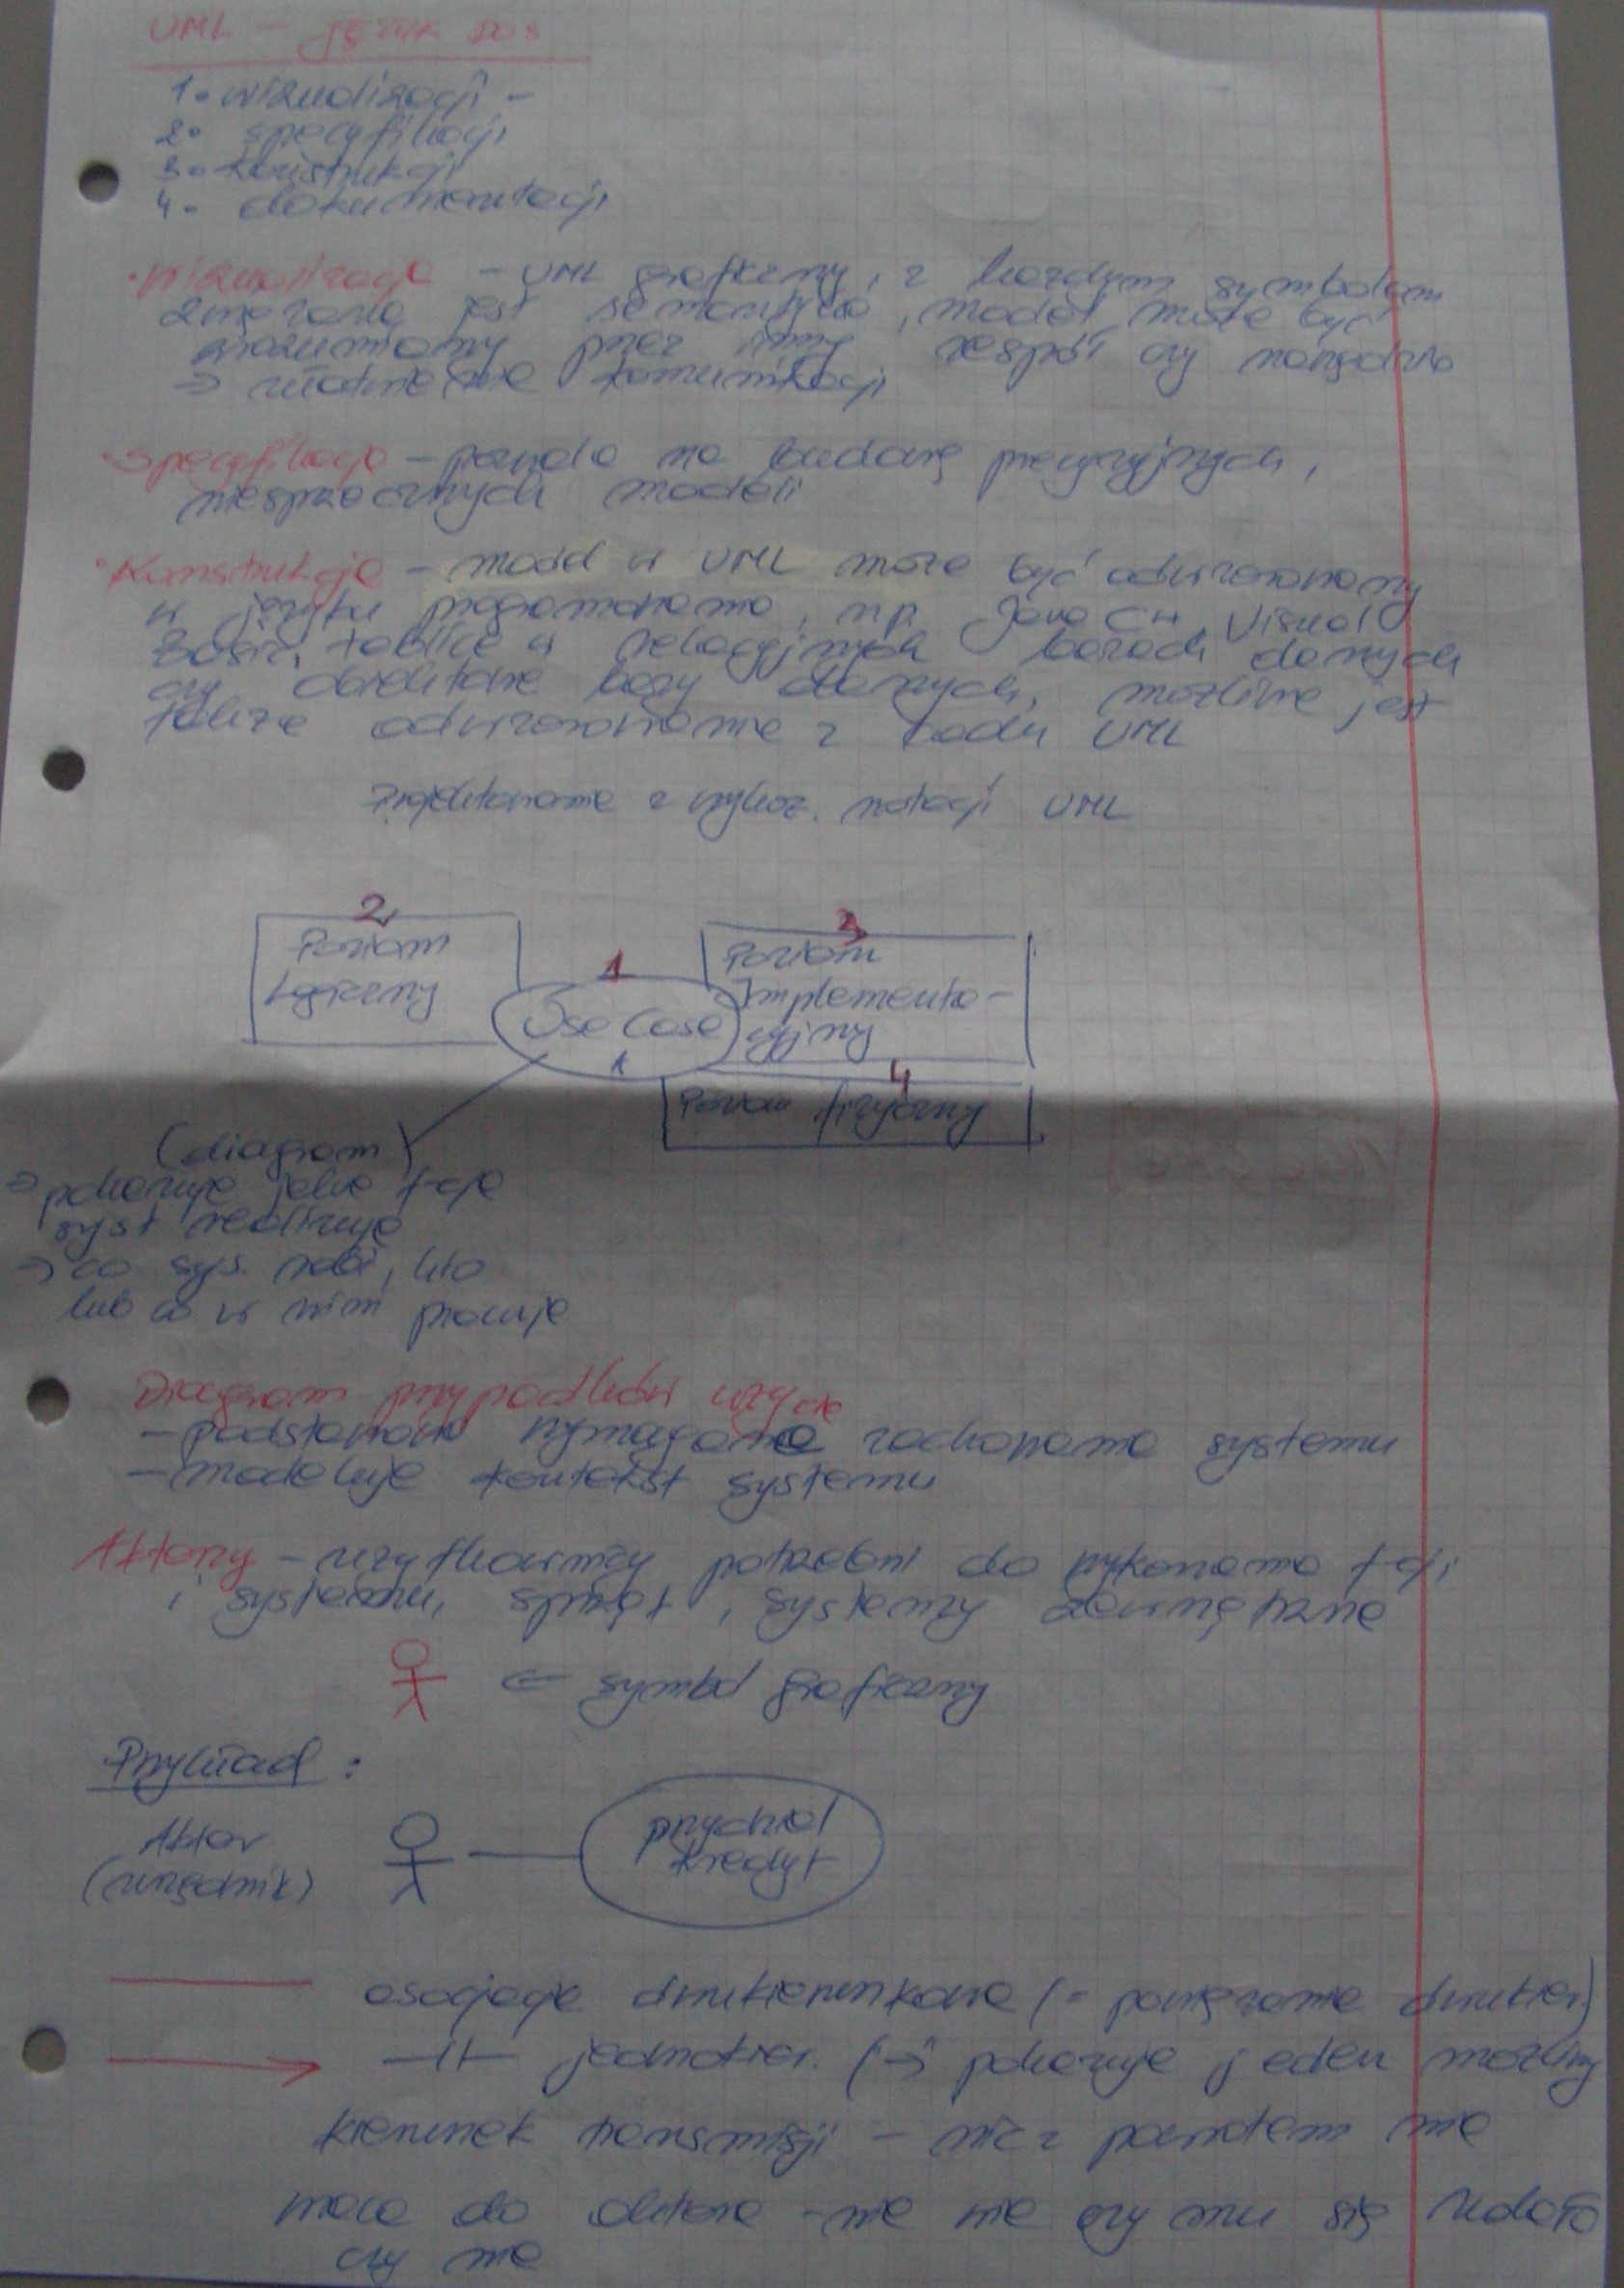 UML – język dos
1. wizualizacji –
2. specyfikacji
3. konstrukcji
4. dokumentacji
• Wizualizacja – UML graficzny, z każdym symbolem
związana jest semantyka, model może być
zrozumiany przez inny zespół czy narzędzie
→ ułatwienie komunikacji
• Specyfikacja – pozwala na budowę precyzyjnych,
niesprzecznych modeli
• Konstrukcja – model w UML może być odwzorowany
w języku programowania, np. Java C++, Visual
Basic, tablice w relacyjnych bazach danych
czy obiektowe bazy danych, możliwe jest
także odwzorowanie z kodu UML
Projektowanie z wykorz. notacji UML
2
Poziom
Logiczny
1
Use Case
1
3
Poziom
Implementa-
cyjny
4
Poziom fizyczny
(diagram)
→ pokazuje jakie f-cje
syst realizuje
→ co sys. robi, kto
lub co w nim pracuje
Diagram przypadków użycia
– podstawowe wymagane zachowania systemu
– modeluje kontekst systemu
Aktorzy – użytkownicy potrzebni do wykonania f-cji
i systemu, sprzęt, systemy zewnętrzne
← symbol graficzny
Przykład :
Aktor
(urzędnik)
przydziel
kredyt
asocjacje dwukierunkowe (= powiązanie dwukier)
–||– jednokier. (→ pokazuje jeden możliwy
kierunek transmisji – nic z powrotem nie
wraca do aktora – nie wie czy mu się udało
czy nie